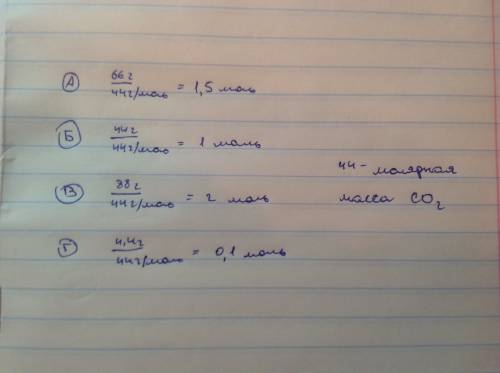 А 66 г / 44 г/моль = 1,5 моль
Б 44 г / 44 г/моль = 1 моль
44 - молярная
масса CO₂
В 88 г / 44 г/моль = 2 моль
Г 4,4 г / 44 г/моль = 0,1 моль